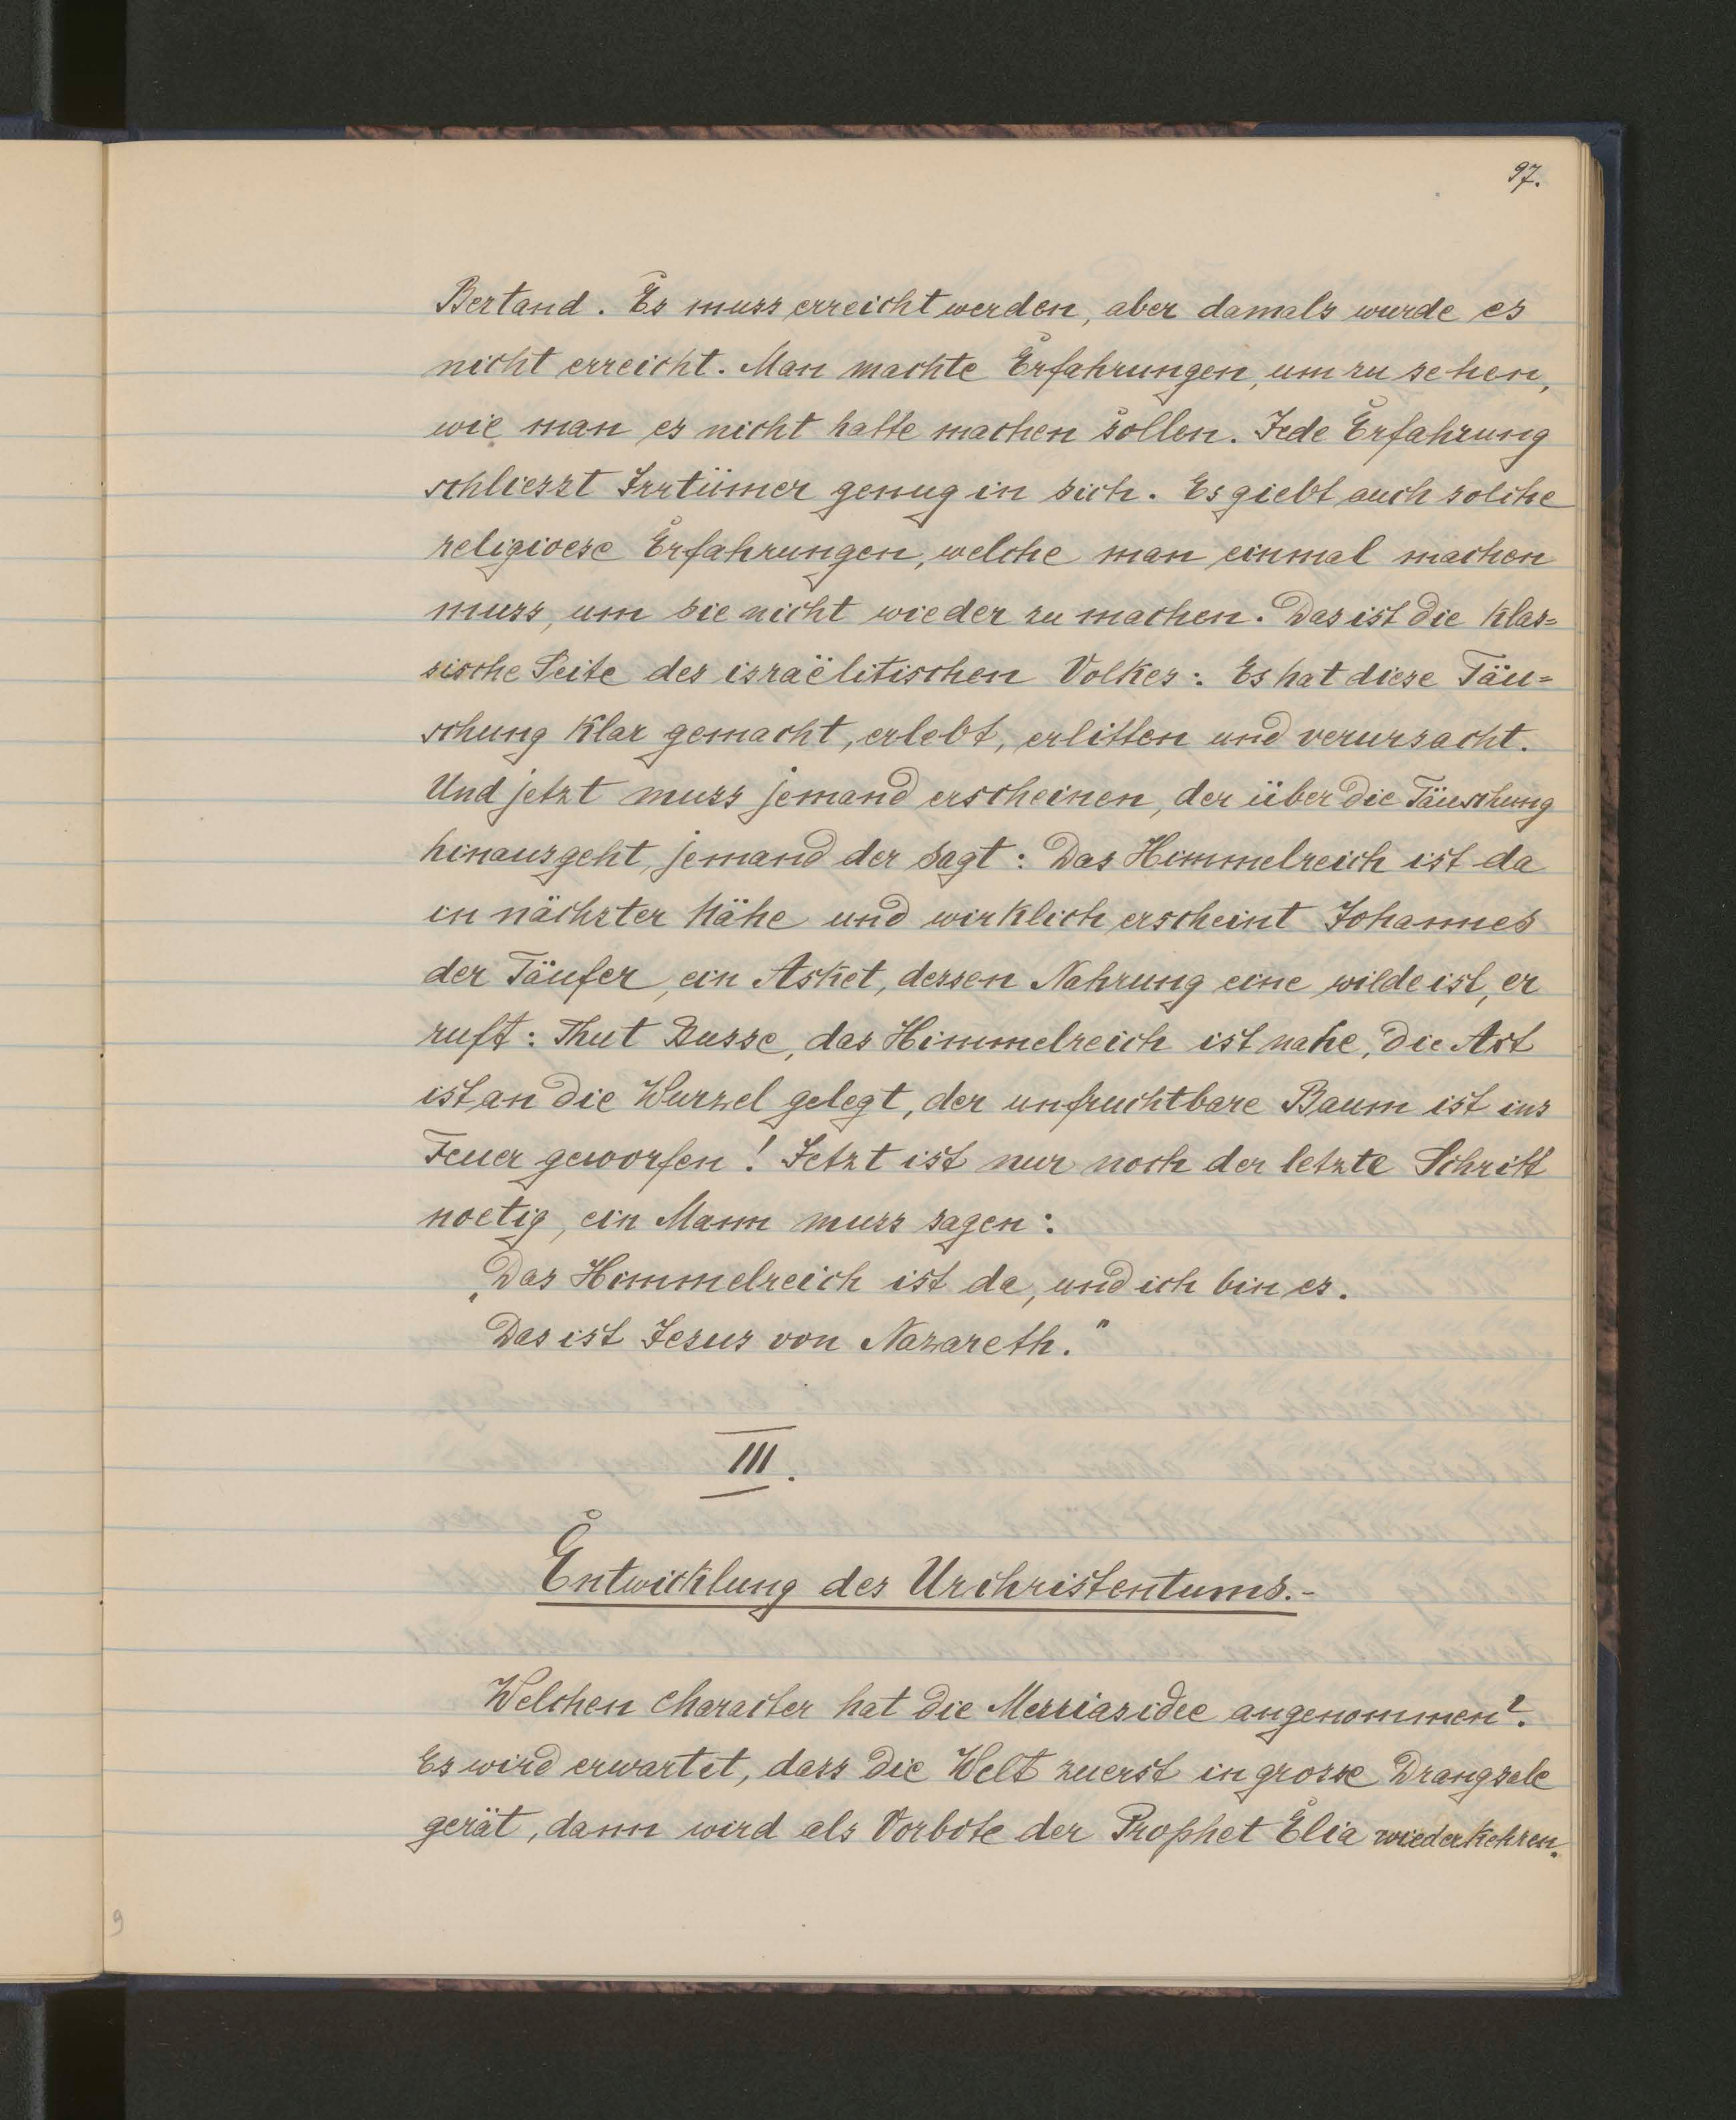 97.
Bestand. Es muss erreicht werden, aber damals wurde es
nicht erreicht. Man machte Erfahrungen, um zu sehen,
wie man es nicht hatte machen sollen. Jede Erfahrung
schliesst Irrtümer genug in sich. Es giebt auch solche
religioese Erfahrungen, welche man einmal machen
muss, um sie nicht wieder zu machen. Das ist die klas=
sische Seite des israëlitischen Volkes: Es hat diese Täu=
schung klar gemacht, erlebt, erlitten und verursacht.
Und jetzt muss jemand erscheinen, der über die Täuschung
hinausgeht, jemand der sagt: Das Himmelreich ist da
in nächster Nähe und wirklich erscheint Johannes
der Täufer, ein Asket, dessen Nahrung eine wilde ist, er
ruft: Thut Busse, das Himmelreich ist nahe, die Axt
ist an die Wurzel gelegt, der unfruchtbare Baum ist ins
Feuer geworfen! Jetzt ist nur noch der letzte Schritt
noetig, ein Mann muss sagen:
„Das Himmelreich ist da, und ich bin es.
Das ist Jesus von Nazareth."
III.
Entwicklung des Urchristentums.-
Welchen Character hat die Messiasidee angenommen?
Es wird erwartet, dass die Welt zuerst in grosse Drangsale
gerät, dann wird als Vorbote der Prophet Elia wiederkehren.
9